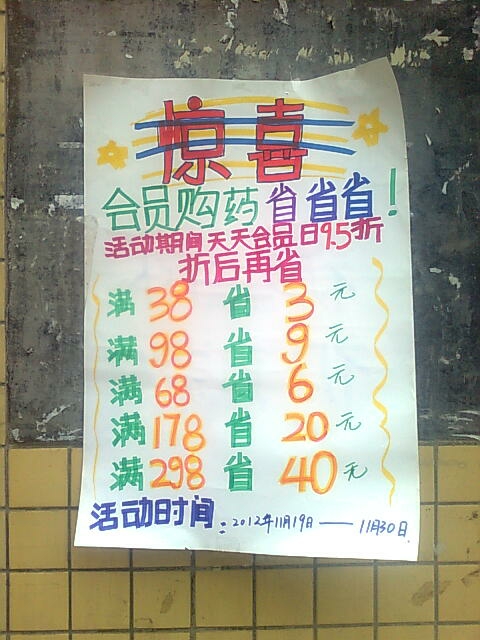 惊喜
会员购药省省省！
活动期间天天会员日9.5折
折后再省
满38省3元
满98省9元
满68省6元
满178省20元
满298省40元
活动时间：2012年11月19日——11月30日